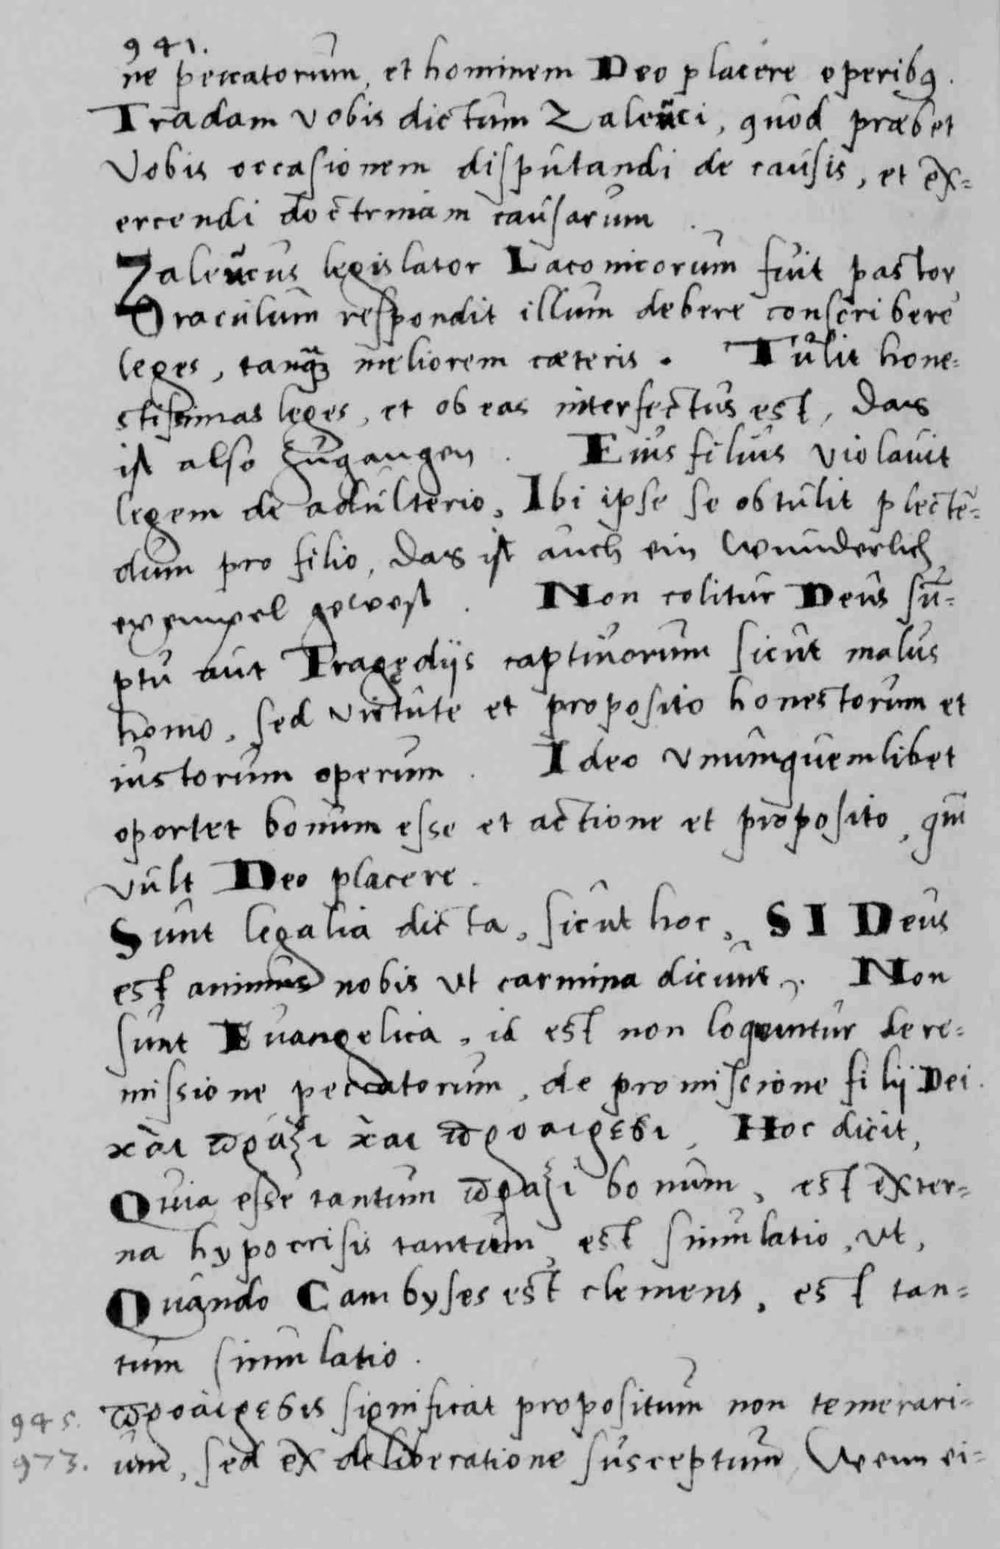 941.
ne peccatorum, et hominem Deo placere operibꝰ.
Tradam vobis dictum Zaleuci, quod præbet
vobis occasionem disputandi de causis, et ex=
ercendi doctrinam causarum.
Zaleucus legislator Laconicorum fuit pastor
Oraculum respondit illum debere conscribere
leges, tanquã meliorem cæteris. Tulit hone=
stissimas leges, et ob eas interfectus est, das
ist also zugangen. Eius filius violavit
legem de adulterio, Ibi ipse se obtulit plectẽ=
dum pro filio, das ist auch ein wunderlich
exempel gewest. Non colitur Deus su̅=
ptu aut Tragędijs captivorum sicut malus
homo, sed virtute et proposito honestorum et
iustorum operum. Ideo unumquemlibet
oportet bonum esse et actione et proposito, qui
vult Deo placere.
Sunt legalia dicta, sicut hoc, SI Deus
est animus nobis ut carmina dicunt. Non
sunt Evangelica, id est non loquuntur de re=
missione peccatorum, de promissione filij Dei.
καὶ πράξι καὶ προαιρέσι, Hoc dicit,
Quia esse tantum πράξι bonum, est exter=
na hypocrisis tantum, est simulatio, ut,
Quando Cambyses est clemens, est tan=
tum simulatio.
945. προαίρεσις significat propositum non temerari=
973. um, sed ex deliberatione susceptum, Wenn ei=